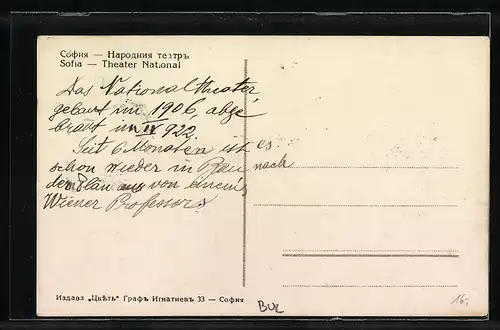 София — Народния театръ
Sofia — Theater National
Das Nationaltheater
gebaut im 1906, abge
brant im IV 922.
Seit 6 Monaten ist es
schon wieder in Bau nach
dem Plan aus von einem
Wiener Professors
Издава „Цвѣтъ" Графъ Игнатиевъ 33 — София
BUL
16,-